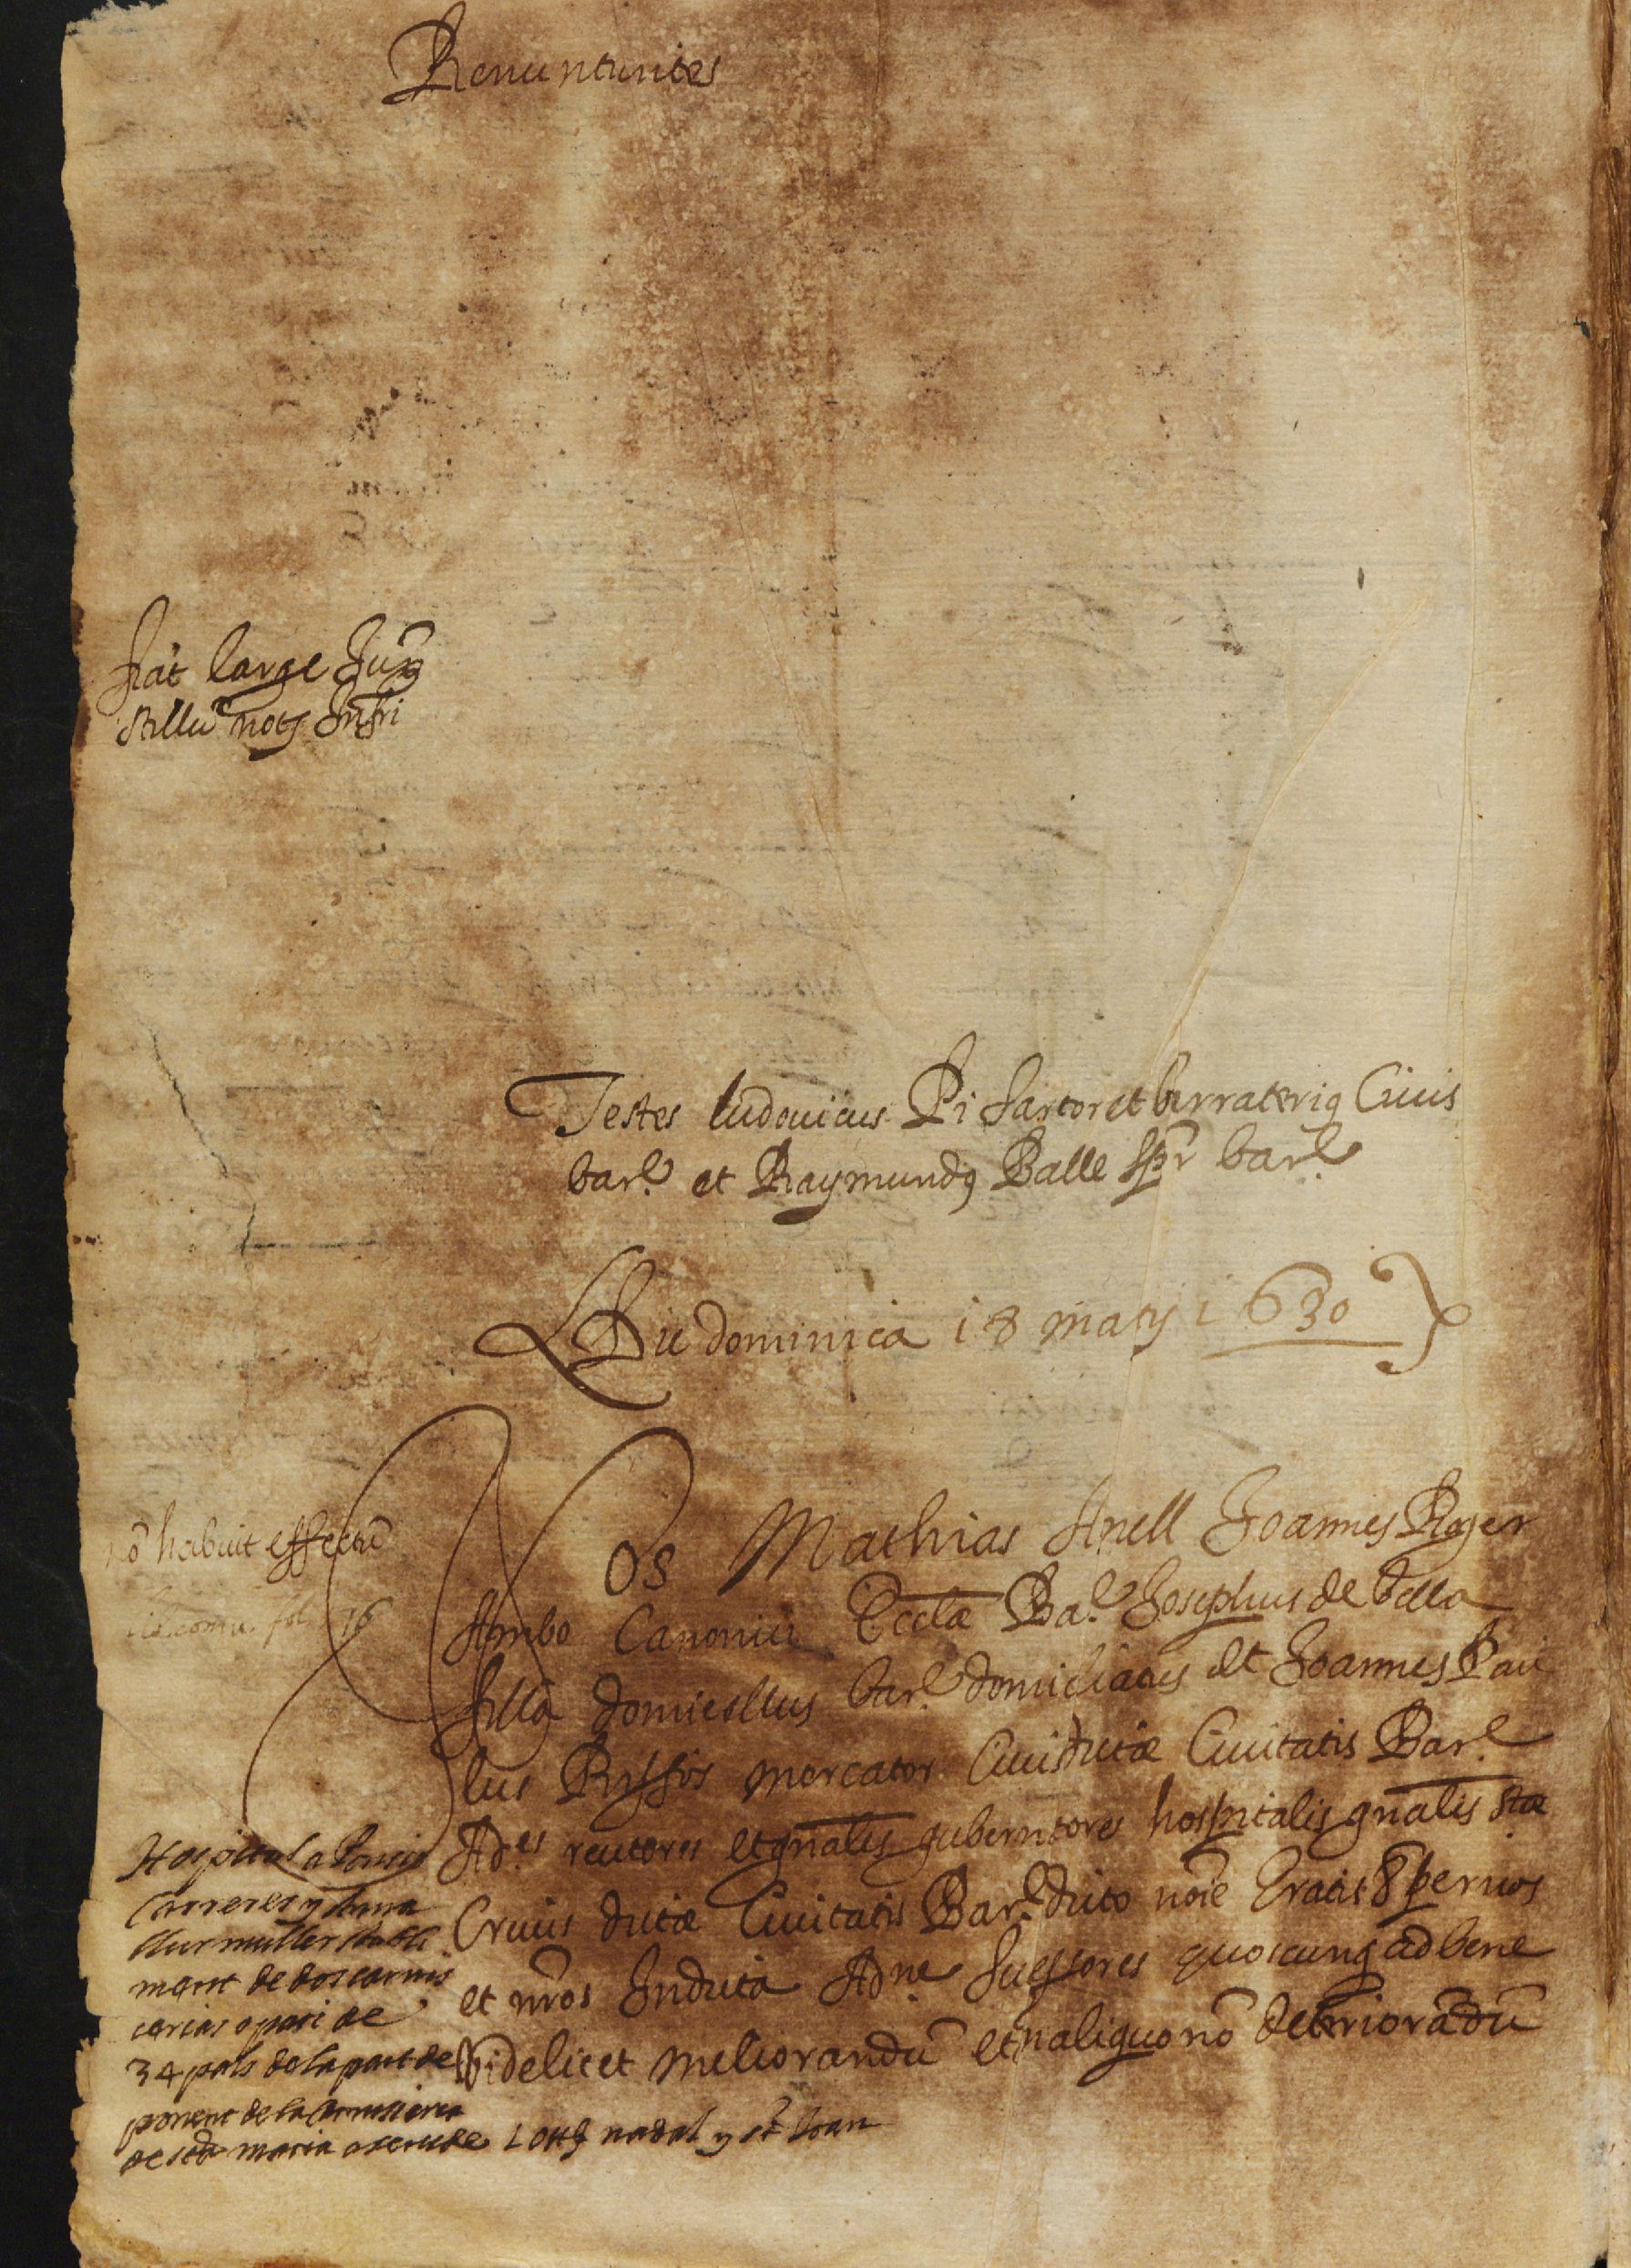 Renuntiantes
fiat large Iux
stillũ notj infri
Testes ludouicus Pi sartor et barraterig Ciuis
barl. et Raymundg Balle spr barl.
Die dominica i8 maij i630
nõ habuit effectũ
fol. 76
Nos Mathias Amell Joannes Roger
Ambo Canonici Eccłæ Bal. Josephus de bella
filla domicellus barl. domiciliatus et Joannes Pau
lus mercator Ciuis dictæ Ciuitatis Barl.
Ades rectores et gnãles gubernatores hospitalis gnãlis stæ
Crucis dictæ Ciuitatis Barl. dicto nõie Gratis et per nos
et nr̃os Indicta Adne sucessores quoscunq ad bene
videlicet meliorandũ et in aliquo nõ deteriorãdũ
Hospital a
Carreres y Anna
sa muller
ment de dos carnis
cerias o pati de
34 pals de la part de
ponent de la
de sta maria a nadal y st Joan